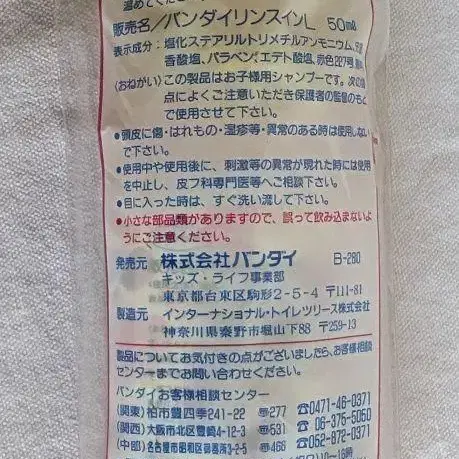 温めてくだ
販売名/バンダイリンスインL 50ml
表示成分:塩化ステアリルトリメチルアンモニウム、安息
香酸塩、パラベン、エデト酸塩、赤色227号、
(おねがい)この製品はお子様用シャンプーです。次の
点によくご注意いただき保護者の監督のもと
で使用させて下さい。
●頭皮に傷・はれもの・湿疹等・異常のある時は使用しない
で下さい。
●使用中や使用後に、刺激等の異常が現れた時には使用
を中止し、皮フ科専門医等へご相談下さい。
●目に入った時は、すぐ洗い流して下さい。
●小さな部品類がありますので、誤って飲み込まないよ
うにご注意ください。
発売元 株式会社バンダイ B-280
キッズ・ライフ事業部
東京都台東区駒形2-5-4 〒111-81
製造元 インターナショナル・トイレツリース株式会社
神奈川県秦野市堀山下88 〒259-13
製品についてお気付きの点がございましたら、お客様相談
センターまでお問い合わせください。
バンダイお客様相談センター
(関東)柏市豊四季241-22 〒277 ☎0471-46-0371
(関西)大阪市北区豊崎4-12-3 〒531 ☎06-375-5050
(中部)名古屋市昭和区御器所3-2-5 〒466 ☎052-872-0371
10~16時